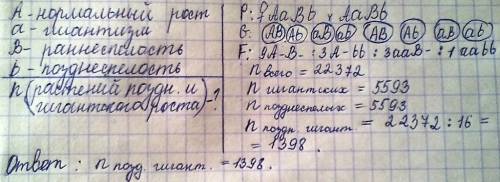 A - нормальный рост
a - гигантизм
B - раннеспелость
b - позднеспелость
n (растений поздн. и гигантского роста) - ?
P: ♀ AaBb x AaBb
G: AB Ab aB ab AB Ab aB ab
F: 9A-B- : 3A-bb : 3aaB- : 1aabb
n всего = 22372
n гигантских = 5593
n позднеспелых = 5593
n поздн. гигант = 22372 : 16 =
= 1398.
Ответ: n позд. гигант. = 1398.